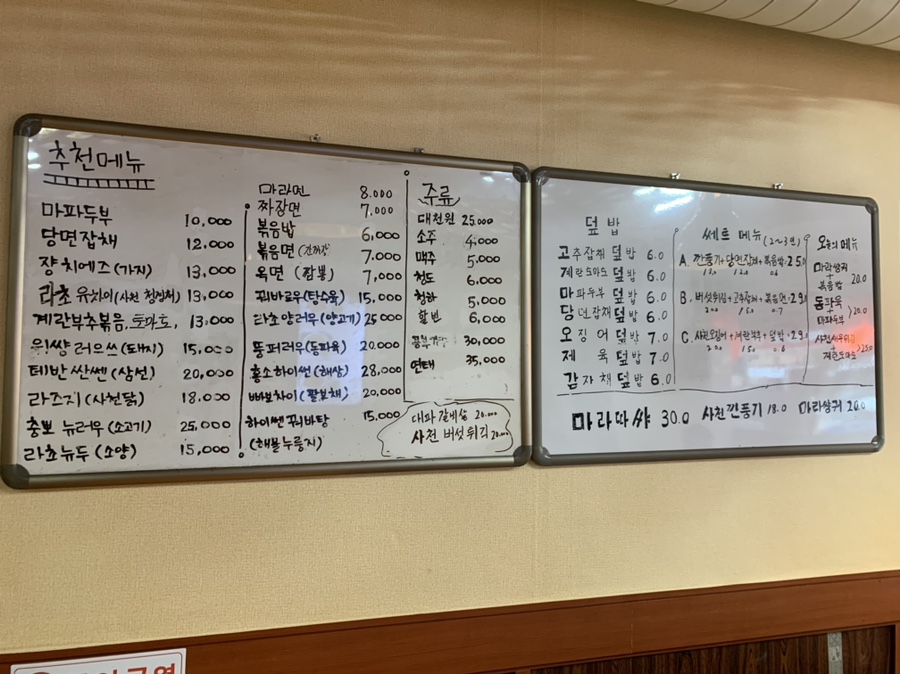 추천메뉴
마파두부 10,000
당면잡채 12,000
쟝치에즈(가지) 13,000
라초육차이(사천 청경채) 13,000
계란부추볶음, 토마토, 13,000
위썅러우쓰(돼지) 15,000
테반싼쎈(삼선) 20,000
라즈지(사천닭) 18,000
충뽀 뉴러우(소고기) 25,000
라초뉴두(소양) 15,000
마라면 8.000
짜장면 7,000
볶음밥 6,000
볶음면 7,000
옥면(짬뽕) 7,000
꿔바로우(탕수육) 15,000
라초양러우(양고기) 25000
뚱퍼러우(동파육) 20,000
홍소하이쎈(해삼) 28,000
빠보차이(팔보채) 20,000
하이쎈꿔비탕 15,000
(해물누룽지)
주류
대천원 25,000
소주 4,000
맥주 5,000
청도 6,000
청하 5,000
6,000
30,000
연태 35,000
대파 갈비살 20,000
사천 버섯튀김 20,000
덮밥
고추잡채 덮밥 6.0
계란토마토 덮밥 6.0
마파두부 덮밥 6.0
당면잡채 덮밥 6.0
오징어 덮밥 7.0
제육 덮밥 7.0
감자채 덮밥 6.0
쎄트 메뉴 (2~3인)
A. 깐풍기+당면잡채+볶음밥 25.0
18.0 12.0 0.6
B. 버섯튀김+고추잡채+볶음면 29.0
20.0 15.0 0.7
C. 사천오징어+계란부추+덮밥 29.0
20.0 15.0 0.6
오늘의 메뉴
마라쌍궈
+
볶음밥 20.0
동파육
+
마파두부 >20.0
+
계란토마토 >25.0
마라따샤 30.0 사천깐풍기 18.0 마라쌍궈 20.0